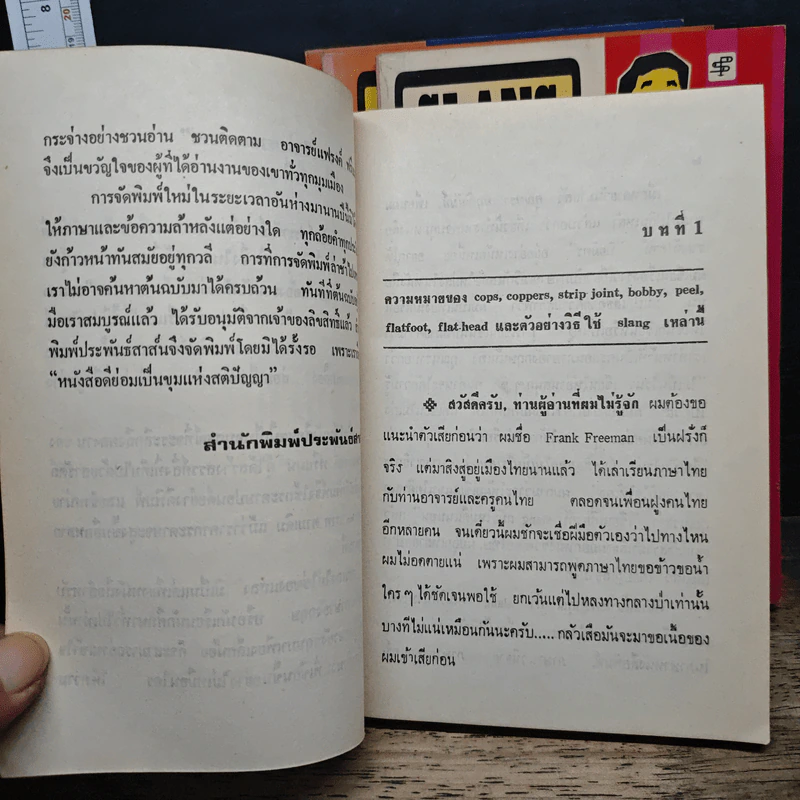 กระจ่างอย่างชวนอ่าน ชวนติดตาม อาจารย์แฟรงค์
จึงเป็นขวัญใจของผู้ที่ได้อ่านงานของเขาทั่วทุกมุมเมือง
การจัดพิมพ์ใหม่ในระยะเวลาอันห่างมานานปีนี้
ให้ภาษาและข้อความล้าหลังแต่อย่างใด ทุกถ้อยคำทุก
ยังก้าวหน้าทันสมัยอยู่ทุกวลี การที่การจัดพิมพ์ล่าช้า
เราไม่อาจค้นหาต้นฉบับมาได้ครบถ้วน ทันทีที่ต้นฉบับ
มือเราสมบูรณ์แล้ว ได้รับอนุมัติจากเจ้าของลิขสิทธิ์แล้ว
พิมพ์ประพันธ์สาส์นจึงจัดพิมพ์โดยมิได้รั้งรอ เพราะเรา
“หนังสือดีย่อมเป็นขุมแห่งสติปัญญา”
สำนักพิมพ์ประพันธ์สา
SLANG
บทที่ 1
ความหมายของ cops, coppers, strip joint, bobby, peel,
flatfoot, flat-head และตัวอย่างวิธีใช้ slang เหล่านี้
สวัสดีครับ, ท่านผู้อ่านที่ผมไม่รู้จัก ผมต้องขอ
แนะนำตัวเสียก่อนว่า ผมชื่อ Frank Freeman เป็นฝรั่งก็
จริง แต่มาสิงสู่อยู่เมืองไทยนานแล้ว ได้เล่าเรียนภาษาไทย
กับท่านอาจารย์และครูคนไทย ตลอดจนเพื่อนฝูงคนไทย
อีกหลายคน จนเดี๋ยวนี้ผมชักจะเชื่อฝีมือตัวเองว่าไปทางไหน
ผมไม่อดตายแน่ เพราะผมสามารถพูดภาษาไทยขอข้าวขอน้ำ
ใคร ๆ ได้ชัดเจนพอใช้ ยกเว้นแต่ไปหลงทางกลางป่าเท่านั้น
บางทีไม่แน่เหมือนกันนะครับ.....กลัวเสือมันจะมาขอเนื้อของ
ผมเข้าเสียก่อน